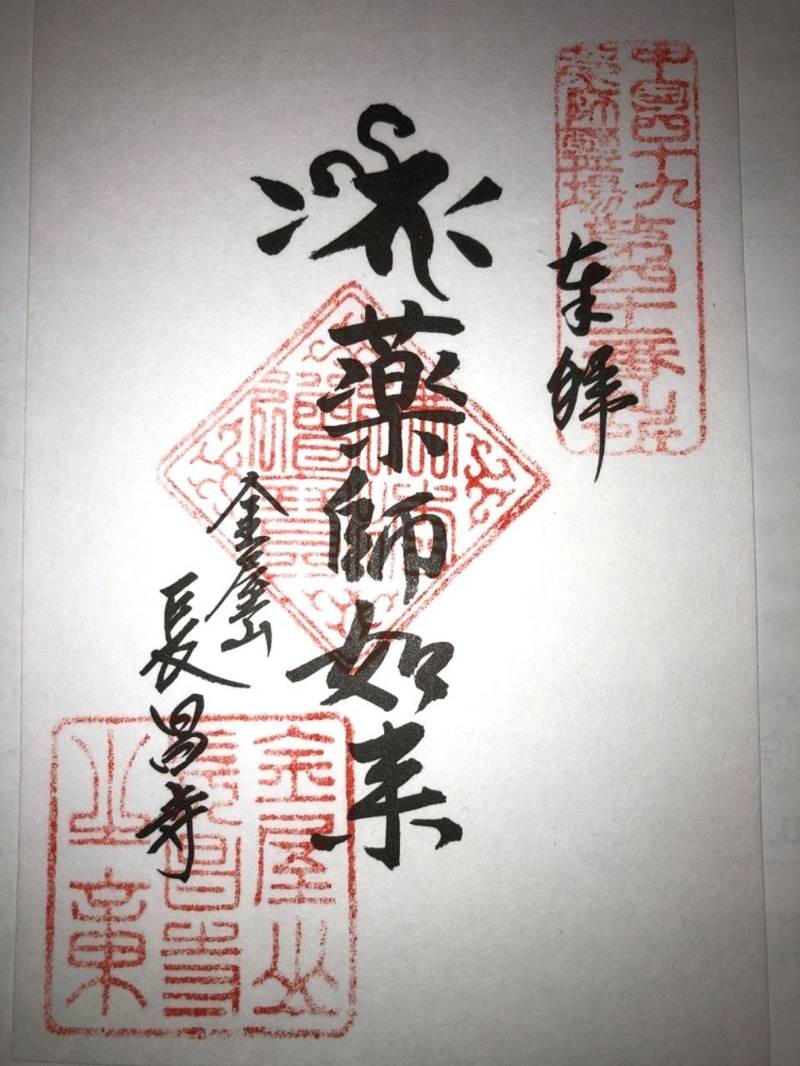 中国四十九
薬師霊場
奉拝
薬師如来
佛法
僧寶
金屋山
長昌寺
金屋山
長昌寺
之章